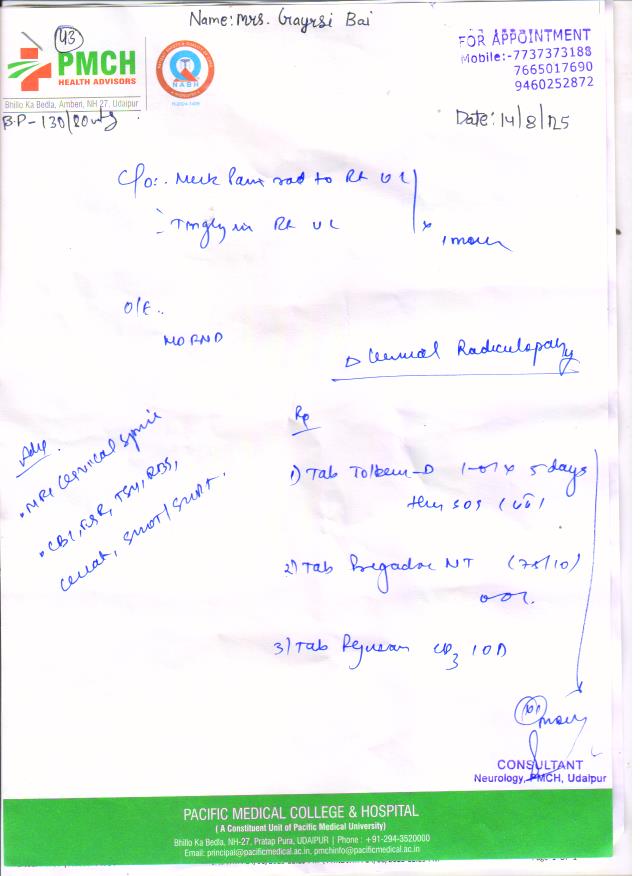 Name: Mrs. Gayrsi Bai
43
PMCH
HEALTH ADVISORS
Bhillo Ka Bedla, Amberi, NH 27, Udaipur
NABH
FOR APPOINTMENT
Mobile:-7737373188
7665017690
9460252872
B.P-130/80
Date: 14/8/25
C/o:. Neck Pain rad to Rt UL
Tingling in Rt UL
x 1 month
O/E..
NO FND
Cervical Radiculopathy
Adv.
MRI Cervical Spine
CBC, ESR, TSH, RBS,
creat, SGOT/SGPT.
Rp
1) Tab D 1-01 x 5 days
then SOS
2) Tab NT (75/10)
001.
3) Tab D3 1OD
CONSULTANT
Neurology, PMCH, Udaipur
PACIFIC MEDICAL COLLEGE & HOSPITAL
( A Constituent Unit of Pacific Medical University)
Bhillo Ka Bedla, NH-27, Pratap Pura, UDAIPUR | Phone : +91-294-3520000
Email: principal@pacificmedical.ac.in, pmchinfo@pacificmedical.ac.in